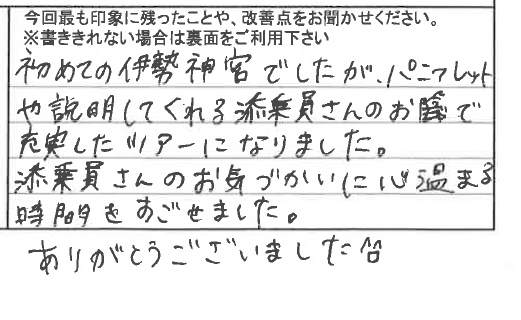 今回最も印象に残ったことや、改善点をお聞かせください。
※書ききれない場合は裏面をご利用下さい
初めての伊勢神宮でしたが、パンフレット
や説明してくれる添乗員さんのお蔭で
充実したツアーになりました。
添乗員さんのお気づかいに心温まる
時間をすごせました。
ありがとうございました